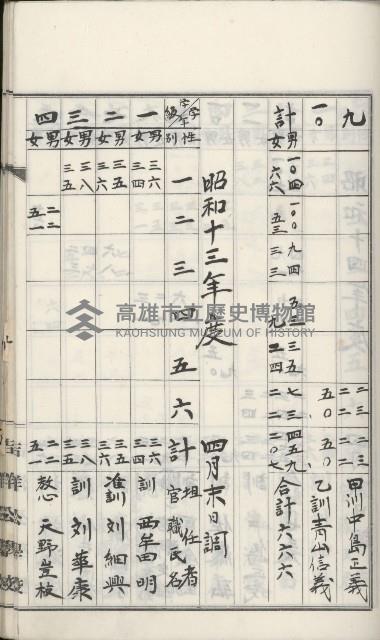 九 二三 二二 二三 二二 田川中島正義
一〇 五〇 五〇 乙訓青山信義
計 男 一〇四 一〇〇 九四 五三 三五 七三 四五九
女 六六 五三 三三 九 二四 二二 二〇七 合計六六六
昭和十三年度 四月末日調
学年 学級 性別 一 二 三 四 五 六 計 担任者官職氏名
一 男 三六 三六 訓 西牟田明
女 三四 三四
二 男 三五 三五 准訓 刘細興
女 三六 三六
三 男 三八 三八 訓 刘華康
女 三五 三五
四 男 二二 二二 教心 天野豊枝
女 五一 五一
高雄市立歷史博物館
KAOHSIUNG MUSEUM OF HISTORY